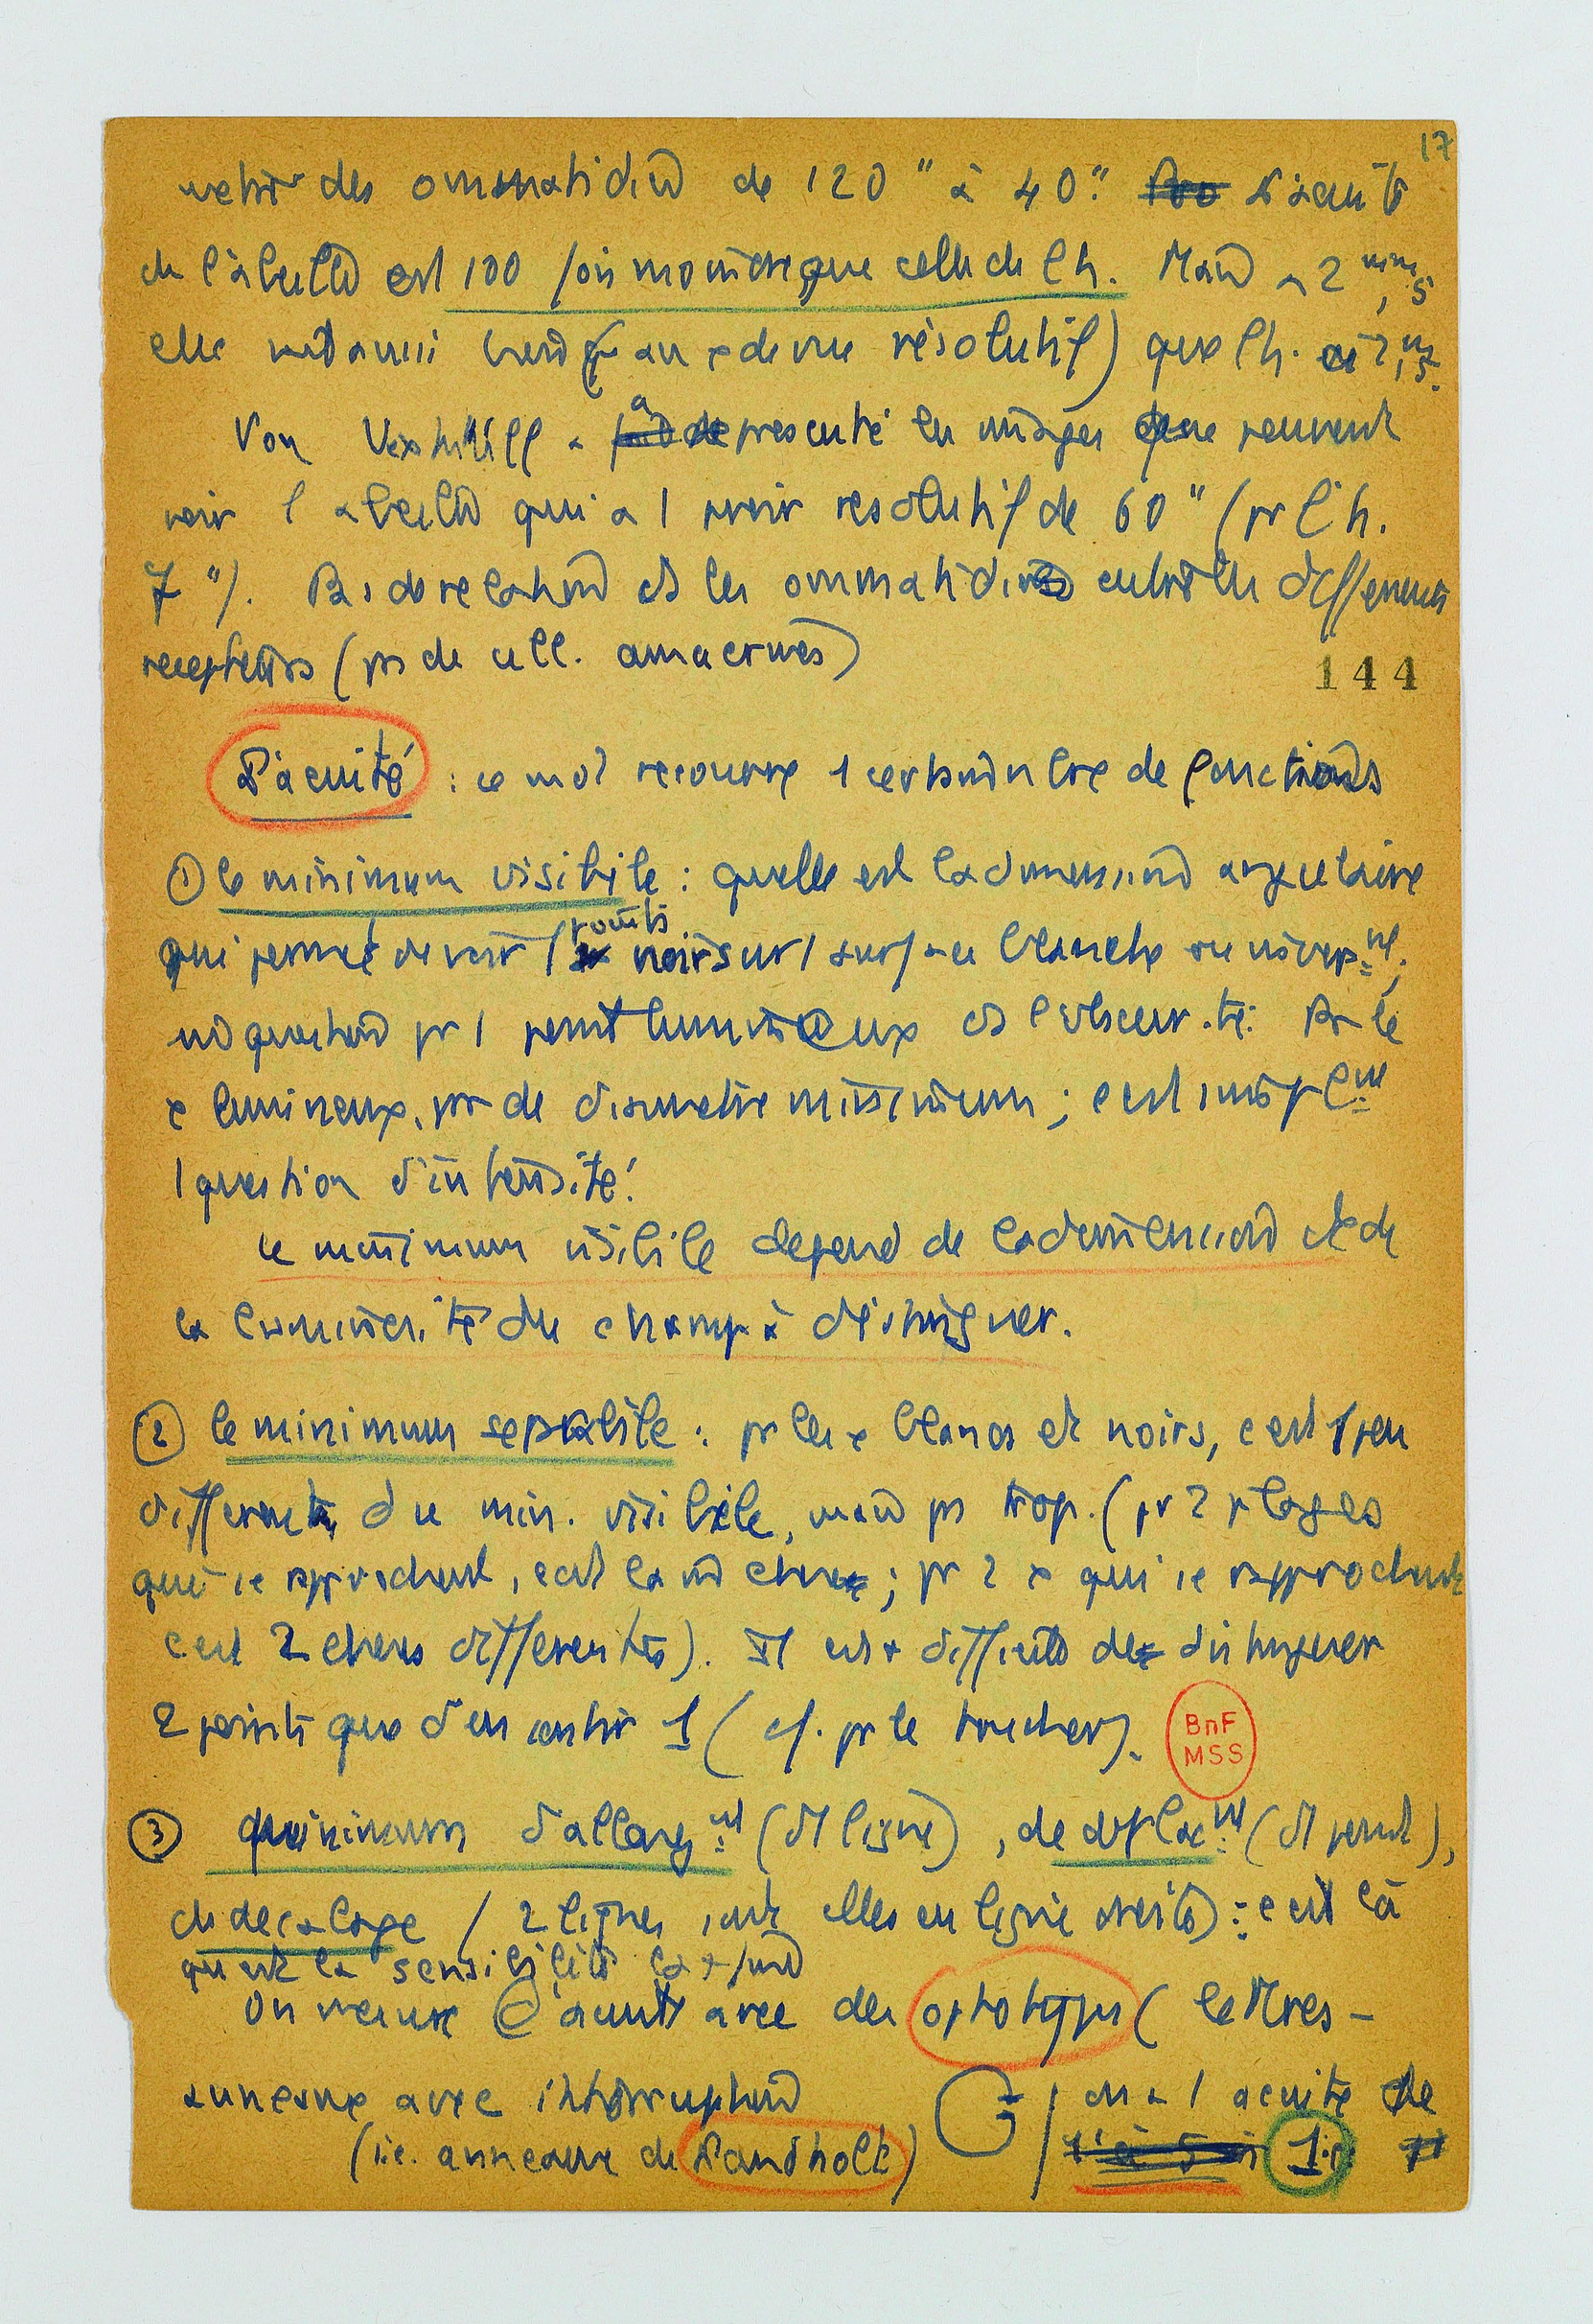 17
des ommatidies de 120" à 40". L'acuité
de l'abeille est 100 fois moindre que celle de l'h. Mais à 2 mm,5
elle voit aussi bien (au x de vue résolutif) que l'h. à 2,m5.
Von Uexhüll a présenté les images que peuvent
voir l'abeille qui a 1 pvoir résolutif de 60" (pr l'h.
7"). Pas de relations ds les ommatidies entre les différents
recepteurs (ps de cell. amacrines)
144
L'acuité : ce mot recouvre 1 certain nbre de fonctions
① le minimum visibile : quelle est la dimension angulaire
qui permet de voir 1 point noir sur 1 surface blanche ou invers.nt;
m question pr 1 point lumineux ds l'obscurité. Pr le
x lumineux, ps de diametre minimum ; c'est simplnt
1 question d'intensité.
Le minimum visibile dépend de la dimension et de
la luminosité du champ à distinguer.
② le minimum separabile : pr les x blancs et noirs, c'est 1 peu
different du min. visibile, mais ps trop. (pr 2 plages
qui se rapprochent, c'est la m chose ; pr 2 x qui se rapprochent
c'est 2 choses differentes). Il est + difficile de distinguer
2 points que d'en sentir 1 (cf. pr le toucher).
BnF
MSS
③ minimum d'allongnt (d'1 ligne), de déplact (d'1 point),
de decalage / 2 lignes sont elles en ligne droite) : c'est là
qu'est la sensibilité la + fine
On mesure l'acuité avec des optotypes (lettres –
anneaux avec interruption on a 1 acuité de
(i.e. anneaux de Landholt) 1